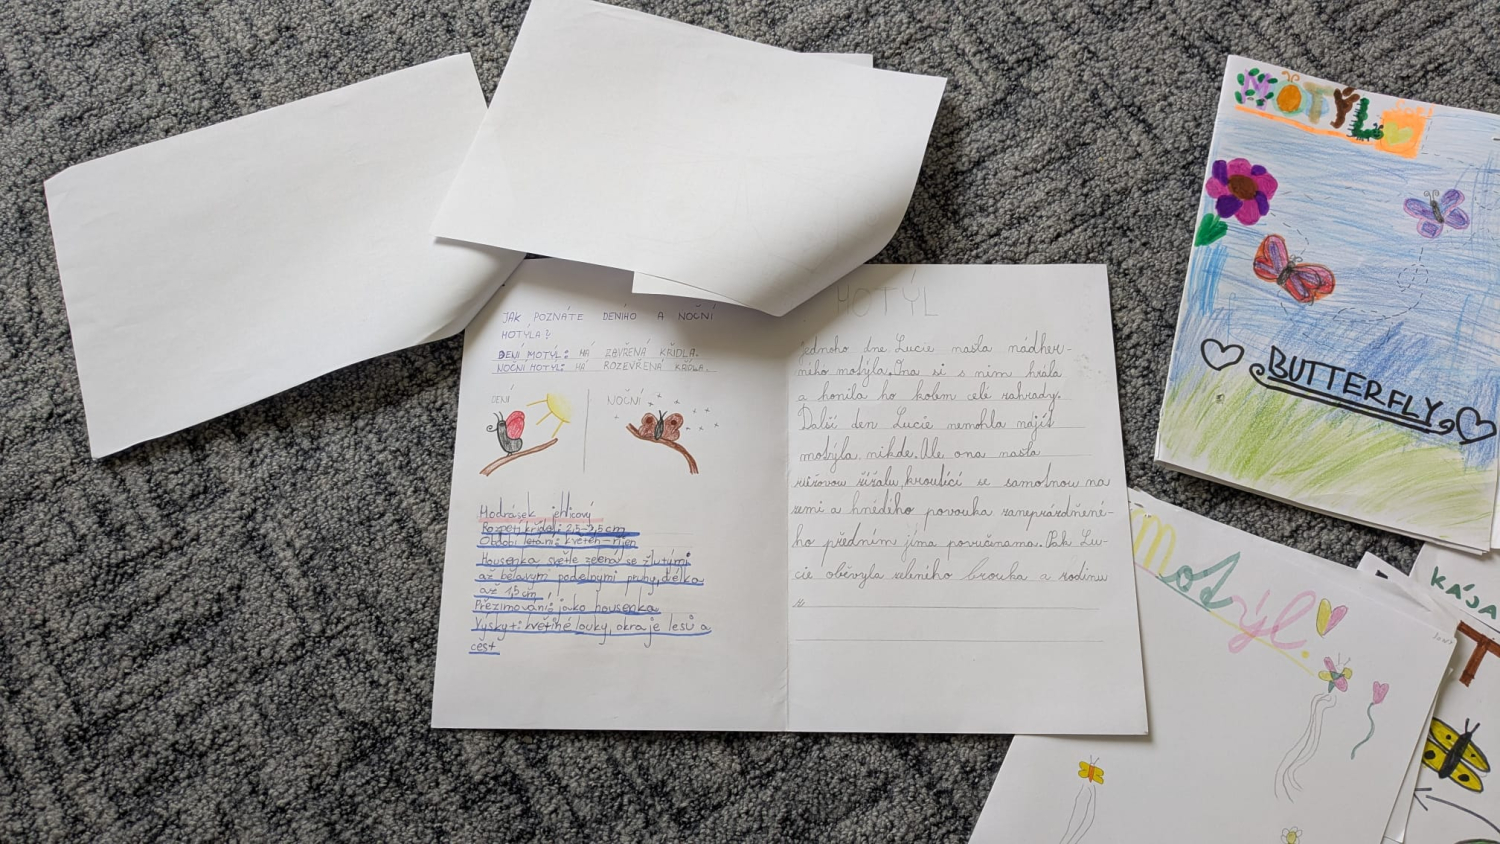 JAK POZNÁTE DENÍHO A NOČNÍ
MOTÝLA?
DENÍ MOTÝL: MÁ ZAVŘENÁ KŘÍDLA.
NOČNÍ MOTÝL: MÁ ROZEVŘENÁ KŘÍDLA.
DENÍ
NOČNÍ
Modrásek jehlicový
Rozpětí křídel: 2,5-3,5cm
Období létání: květen-říjen
Housenka světle zelená se žlutými
až bělavými podélnými pruhy, délka
až 1,5cm
Přezimování: jako housenka
Výskyt: květiné louky, okraje lesů a
cest
MOTÝL
Jednoho dne Lucie našla nádher-
ného motýla. Ona si s ním hrála
a honila ho kolem celé zahrady.
Další den Lucie nemohla najít
motýla nikde. Ale ona našla
růžovou žížalu kroutící se samotnou na
zemi a hnědého pavouka zaneprázdněné-
ho předením pavučinama. Pak Lu-
cie oběvyla zeleného brouka a rodinu
MOTÝL
BUTTERFLY
motýl.
KÁJA
T